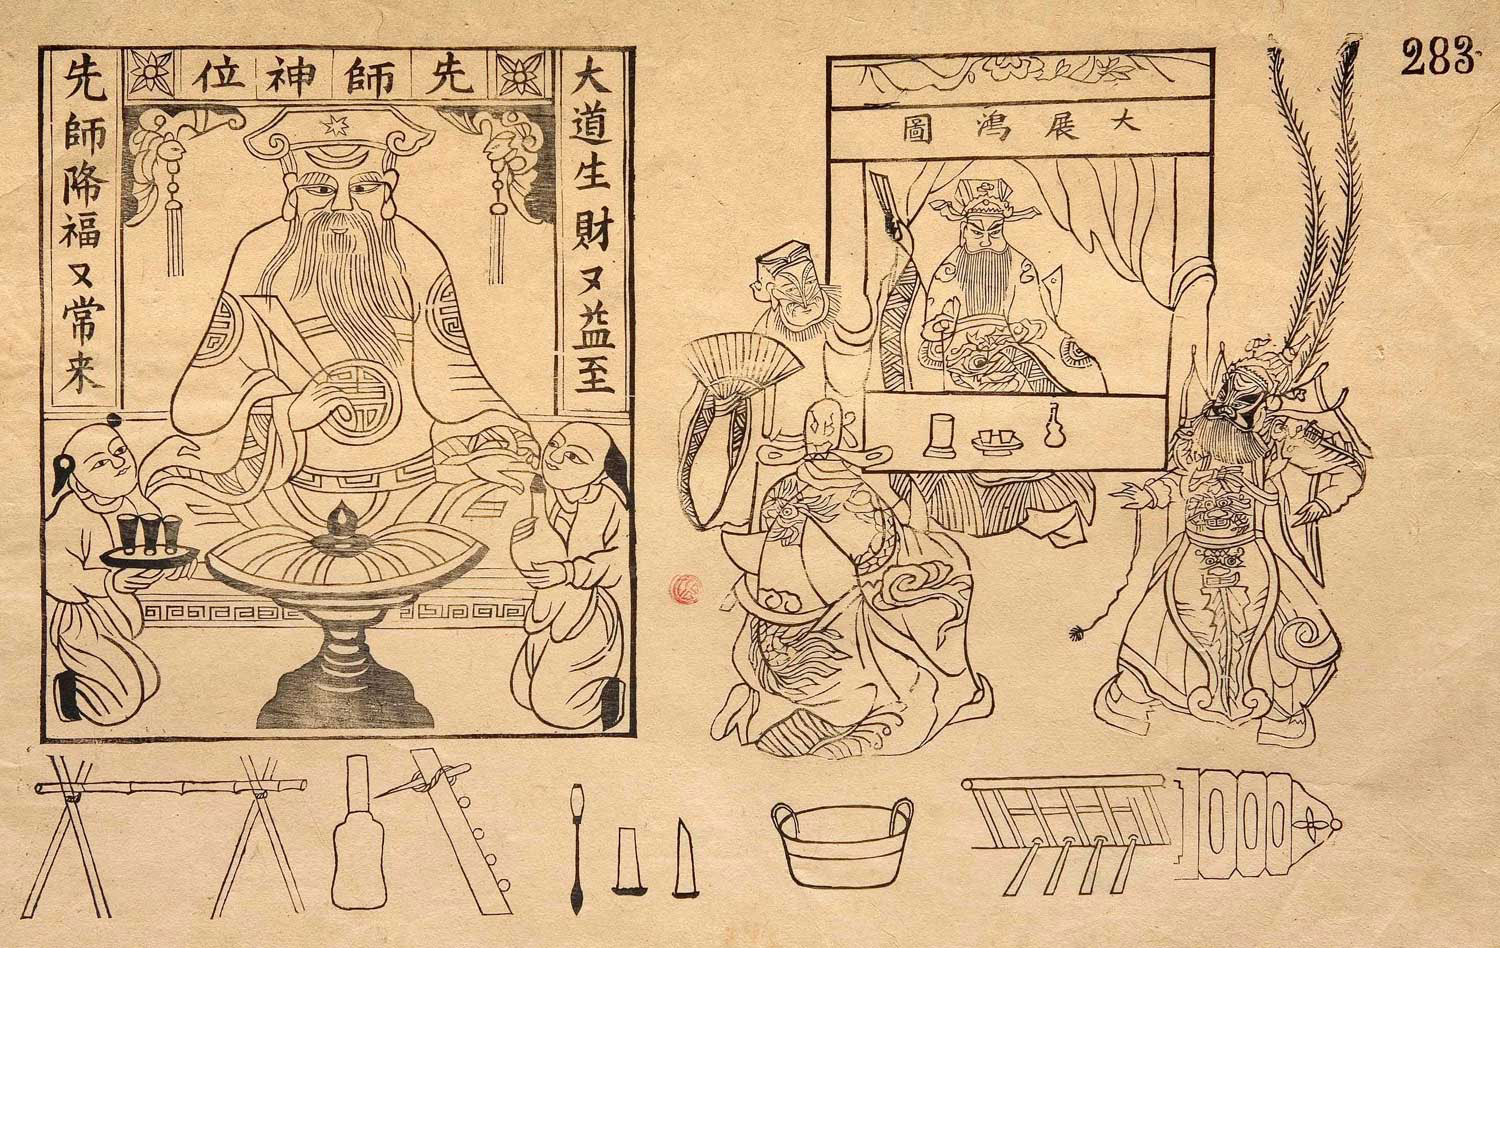 先師神位
大道生財又益至
先師降福又常来
大展鴻圖
283